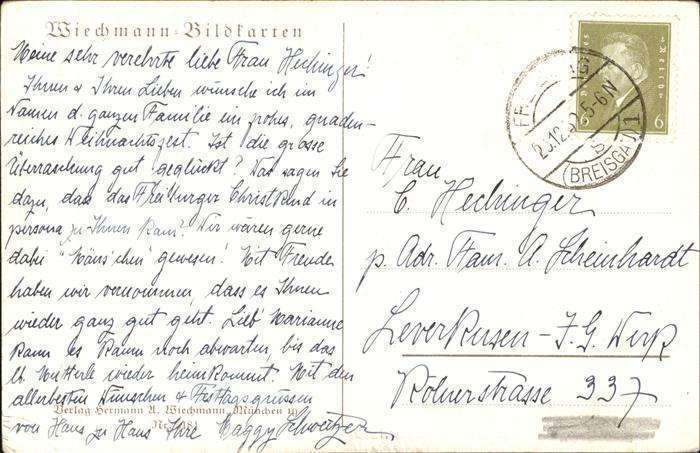 Wiechmann-Bildkarten
Meine sehr verehrte liebe Frau Hechinger!
Ihnen & Ihren Lieben wünsche ich im
Namen d. ganzen Familie ein frohes, gnaden-
reiches Weihnachtsfest. Ist die grosse
Überraschung gut geglückt? Was sagen Sie
dazu, dass das Freiburger Christkind in
persona zu Ihnen kam? Wir wären gerne
dabei "Mäuschen" gewesen! Mit Freude
haben wir vernommen, dass es Ihnen
wieder ganz gut geht. Lieb' Marianne
kann es kaum noch abwarten, bis das
lb. Mutterle wieder heimkommt. Mit den
allerbesten Wünschen & Festtagsgrüssen
von Haus zu Haus Ihre Maggy Schweitzer
Verlag Hermann A. Wiechmann, München
Deutsches Reich
6 6
(BREISGAU) 1
Frau
C. Hechinger
p. Adr. Fam. A. Scheinhardt
Leverkusen-I.G. Werk
Kölnerstrasse 337